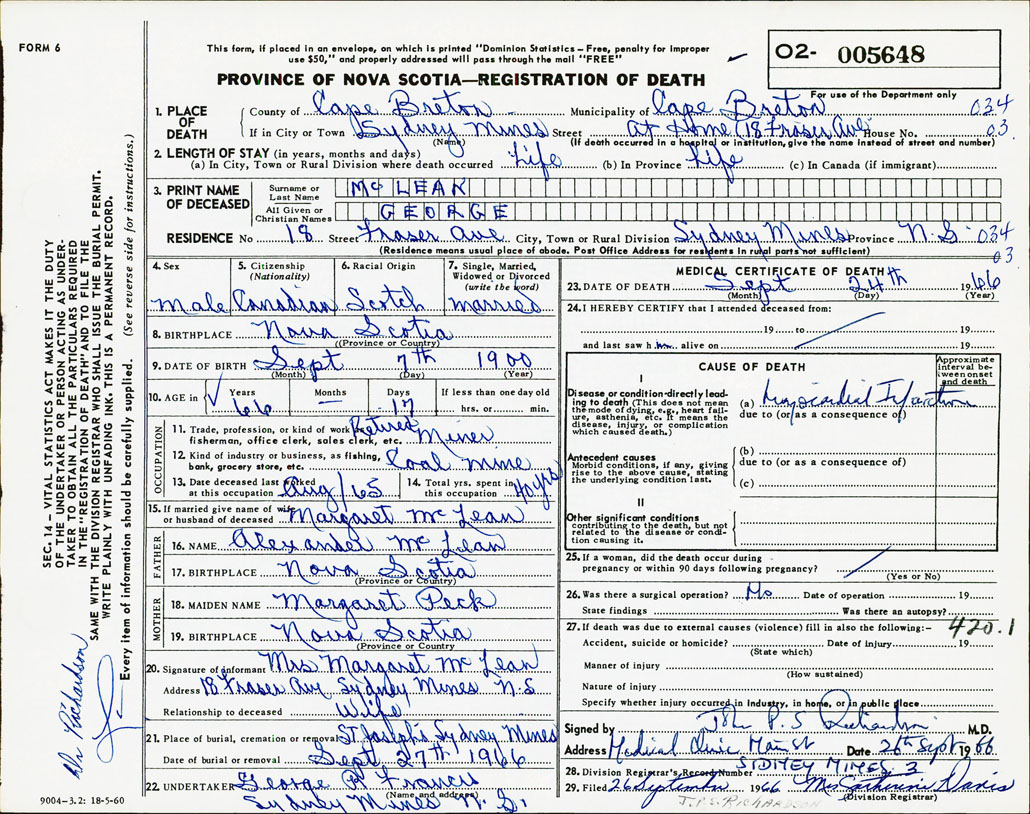 FORM 6
This form, if placed in an envelope, on which is printed "Dominion Statistics—Free, penalty for improper
use $50," and properly addressed will pass through the mail "FREE"
02- 005648
PROVINCE OF NOVA SCOTIA—REGISTRATION OF DEATH
For use of the Department only
1. PLACE OF DEATH County of Cape Breton Municipality of Cape Breton 034
If in City or Town Sydney Mines Street At Home (18 Fraser Ave) House No. 03
(Name) (If death occurred in a hospital or institution, give the name instead of street and number)
2. LENGTH OF STAY (in years, months and days)
(a) In City, Town or Rural Division where death occurred Life (b) In Province Life (c) In Canada (if immigrant)
3. PRINT NAME OF DECEASED Surname or Last Name McLEAN
All Given or Christian Names GEORGE
RESIDENCE No 18 Street Fraser Ave City, Town or Rural Division Sydney Mines Province N.S. 034
(Residence means usual place of abode. Post Office Address for residents in rural parts not sufficient) 03
4. Sex 5. Citizenship (Nationality) 6. Racial Origin 7. Single, Married, Widowed or Divorced (write the word)
Male Canadian Scotch Married
8. BIRTHPLACE Nova Scotia
(Province or Country)
9. DATE OF BIRTH Sept 7th 1900
(Month) (Day) (Year)
10. AGE in Years Months Days If less than one day old
66 — 17 hrs. or min.
OCCUPATION
11. Trade, profession, or kind of work as
fisherman, office clerk, sales clerk, etc. Retired Miner
12. Kind of industry or business, as fishing,
bank, grocery store, etc. Coal mine
13. Date deceased last worked
at this occupation Aug/65
14. Total yrs. spent in
this occupation 40 yrs
15. If married give name of wife
or husband of deceased Margaret McLean
FATHER
16. NAME Alexander McLean
17. BIRTHPLACE Nova Scotia
(Province or Country)
MOTHER
18. MAIDEN NAME Margaret Peck
19. BIRTHPLACE Nova Scotia
(Province or Country)
20. Signature of informant Mrs Margaret McLean
Address 18 Fraser Ave Sydney Mines N.S
Relationship to deceased Wife
21. Place of burial, cremation or removal St Joseph's Sydney Mines
Date of burial or removal Sept 27th 1966
22. UNDERTAKER George R Francis
(Name and address)
Sydney Mines N.S.
MEDICAL CERTIFICATE OF DEATH
23. DATE OF DEATH Sept 24th 1966
(Month) (Day) (Year)
24. I HEREBY CERTIFY that I attended deceased from:
19 to 19
and last saw him alive on 19
CAUSE OF DEATH
Approximate interval between onset and death
I
Disease or condition directly leading to death (This does not mean the mode of dying, e.g., heart failure, asthenia, etc. It means the disease, injury, or complication which caused death.)
(a) Myocardial Infarction
due to (or as a consequence of)
Antecedent causes
Morbid conditions, if any, giving rise to the above cause, stating the underlying condition last.
(b)
due to (or as a consequence of)
(c)
II
Other significant conditions
contributing to the death, but not related to the disease or condition causing it.
25. If a woman, did the death occur during
pregnancy or within 90 days following pregnancy?
(Yes or No)
26. Was there a surgical operation? No Date of operation 19
State findings Was there an autopsy?
27. If death was due to external causes (violence) fill in also the following:— 420.1
Accident, suicide or homicide? Date of injury 19
(State which)
Manner of injury
(How sustained)
Nature of injury
Specify whether injury occurred in Industry, in home, or in public place
Signed by John P.S Richardson M.D.
Address Medical Clinic Main St Date 26th Sept 1966
SIDNEY MINES 3
28. Division Registrar's Record Number
29. Filed 26 September 1966 Mrs Catherine Davis
(Division Registrar)
J.P.S. RICHARDSON
SEC. 14 – VITAL STATISTICS ACT MAKES IT THE DUTY
OF THE UNDERTAKER OR PERSON ACTING AS UNDER-
TAKER TO OBTAIN ALL THE PARTICULARS REQUIRED
IN THE "REGISTRATION OF DEATH" AND TO FILE THE
SAME WITH THE DIVISION REGISTRAR WHO SHALL ISSUE THE BURIAL PERMIT.
WRITE PLAINLY WITH UNFADING INK. THIS IS A PERMANENT RECORD.
Every item of information should be carefully supplied. (See reverse side for instructions.)
Dr Richardson
9004-3.2: 18-5-60